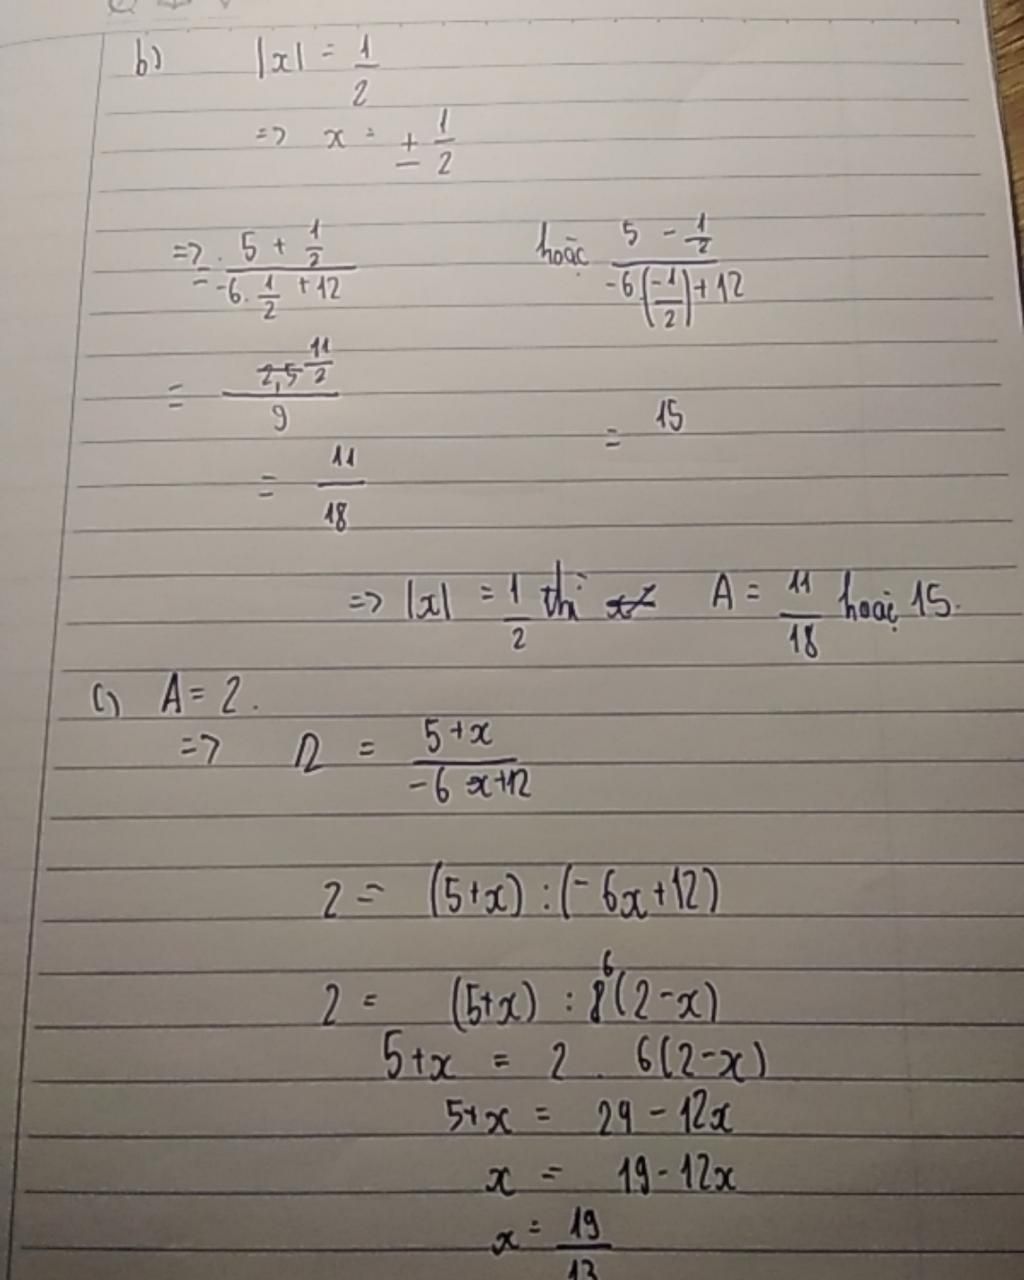 b) |x| = 1/2
=> x = ± 1/2
=> = (5 + 1/2)/(-6. 1/2 + 12) hoặc (5 - 1/2)/(-6(-1/2) + 12)
= 11/2 / 9
= 15
= 11/18
=> |x| = 1/2 thì A = 11/18 hoặc 15.
c) A = 2.
=> 2 = (5+x)/(-6x+12)
2 = (5+x) : (-6x+12)
2 = (5+x) : 6(2-x)
5+x = 2 . 6(2-x)
5+x = 24 - 12x
x = 19 - 12x
x = 19/13